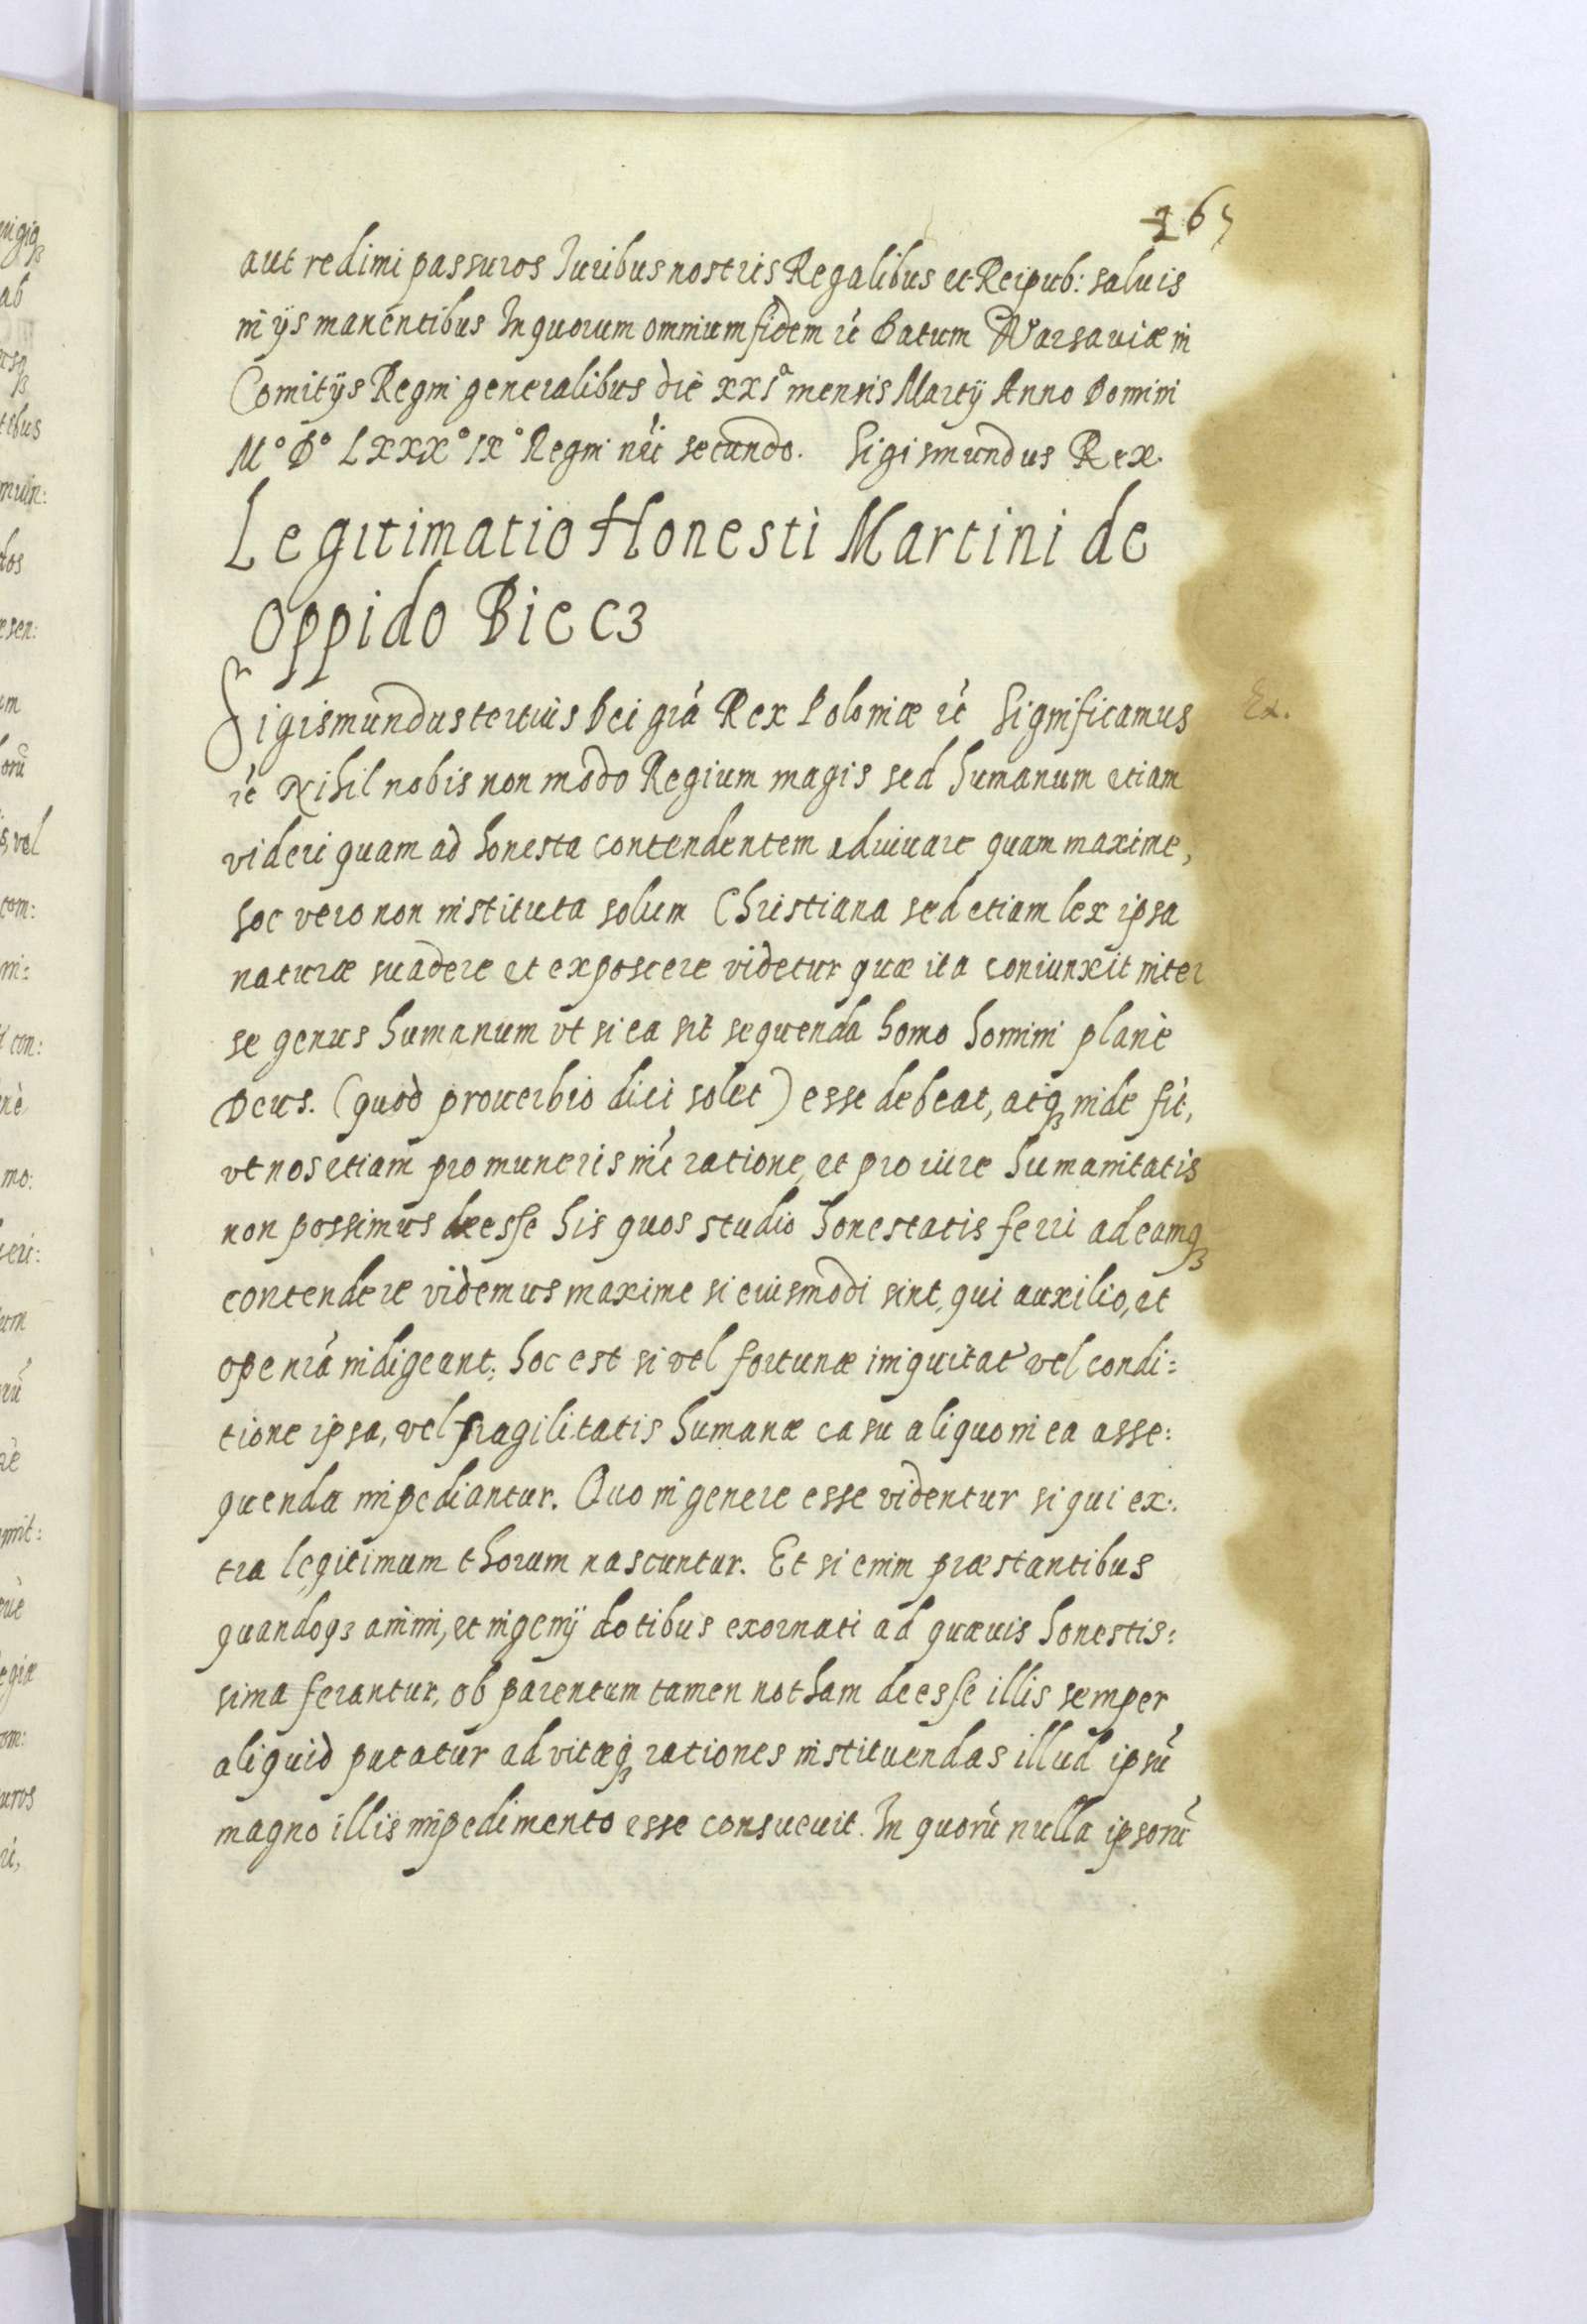 265
aut redimi passuros Iuribus nostris Regalibus et Reipub: saluis
in ijs manentibus In quorum omnium fidem etc Datum Warsauiæ in
Comitijs Regni generalibus die XXIª mensis Martij Anno Domini
M° D° LXXX° IX° Regni nri secundo. Sigismundus Rex.
Legitimatio Honesti Martini de
Oppido Biecz
Sigismundus tertius Dei gra Rex Poloniæ etc Significamus
Ex.
etc Nihil nobis non modo Regium magis sed humanum etiam
videri quam ad honesta contendentem adiuuare quam maxime,
hoc vero non instituta solum Christiana sed etiam lex ipsa
naturæ suadere et exposcere videtur quæ ita coniunxit inter
se genus humanum vt si ea sit sequenda homo homini planè
Deus. (quod prouerbio dici solet) esse debeat, atq; inde fit,
vt nos etiam pro muneris nri ratione, et pro iure humanitatis
non possimus deesse his quos studio honestatis ferri ad eamq;
contendere videmus maxime si eiusmodi sint, qui auxilio, et
ope nra indigeant; hoc est si vel fortunæ iniquitate vel condi:
tione ipsa, vel fragilitatis humanæ casu aliquo in ea asse:
quenda impediantur. Quo in genere esse videntur si qui ex:
tra legitimum thorum nascuntur. Et si enim præstantibus
quandoq; animi, et ingenij dotibus exornati ad quæuis honestis:
sima ferantur, ob parentum tamen notham deesse illis semper
aliquid putatur ad vitæq; rationes instituendas illud ipsū
magno illis impedimento esse consueuit. In quorū nulla ipsorū